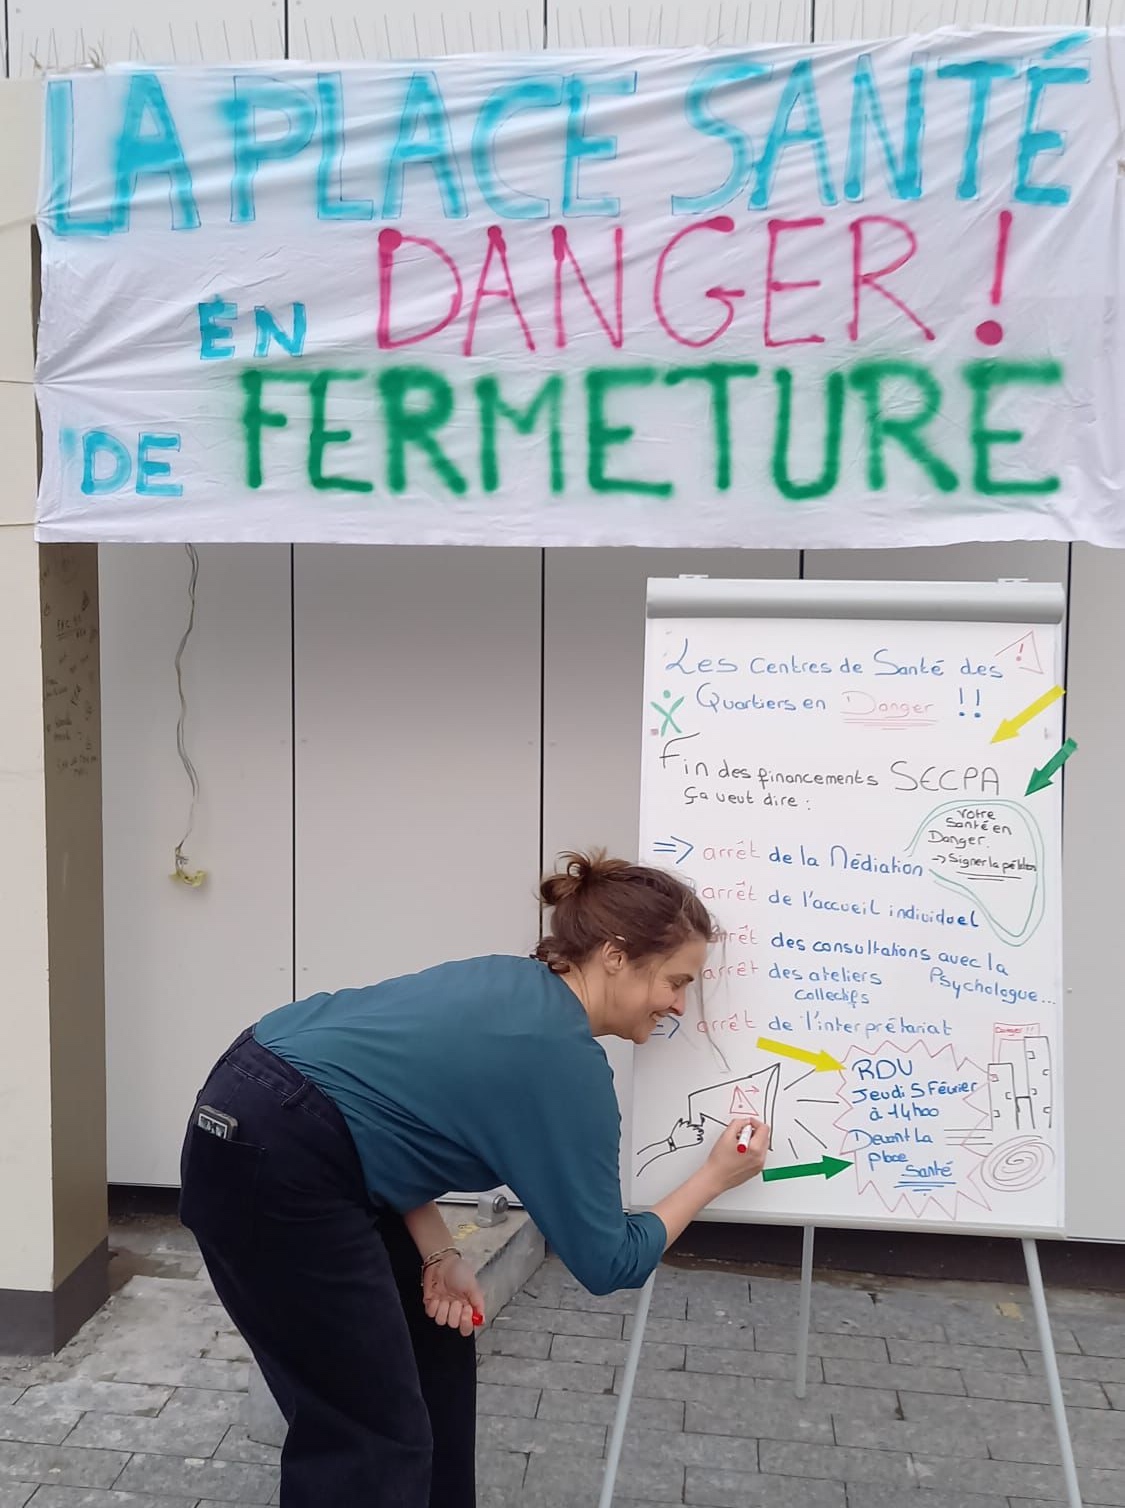 LA PLACE SANTÉ
EN DANGER !
DE FERMETURE
Les Centres de Santé des
Quartiers en Danger !!
Fin des financements SECPA
Ça veut dire :
Votre
Santé en
Danger.
→ Signer la pétition
⇒ arrêt de la Médiation
arrêt de l'accueil individuel
arrêt des consultations avec la
Psychologue...
arrêt des ateliers
collectifs
⇒ arrêt de l'interprétariat
Danger !!
RDV
Jeudi 5 Février
à 14h00
Devant La
place
Santé